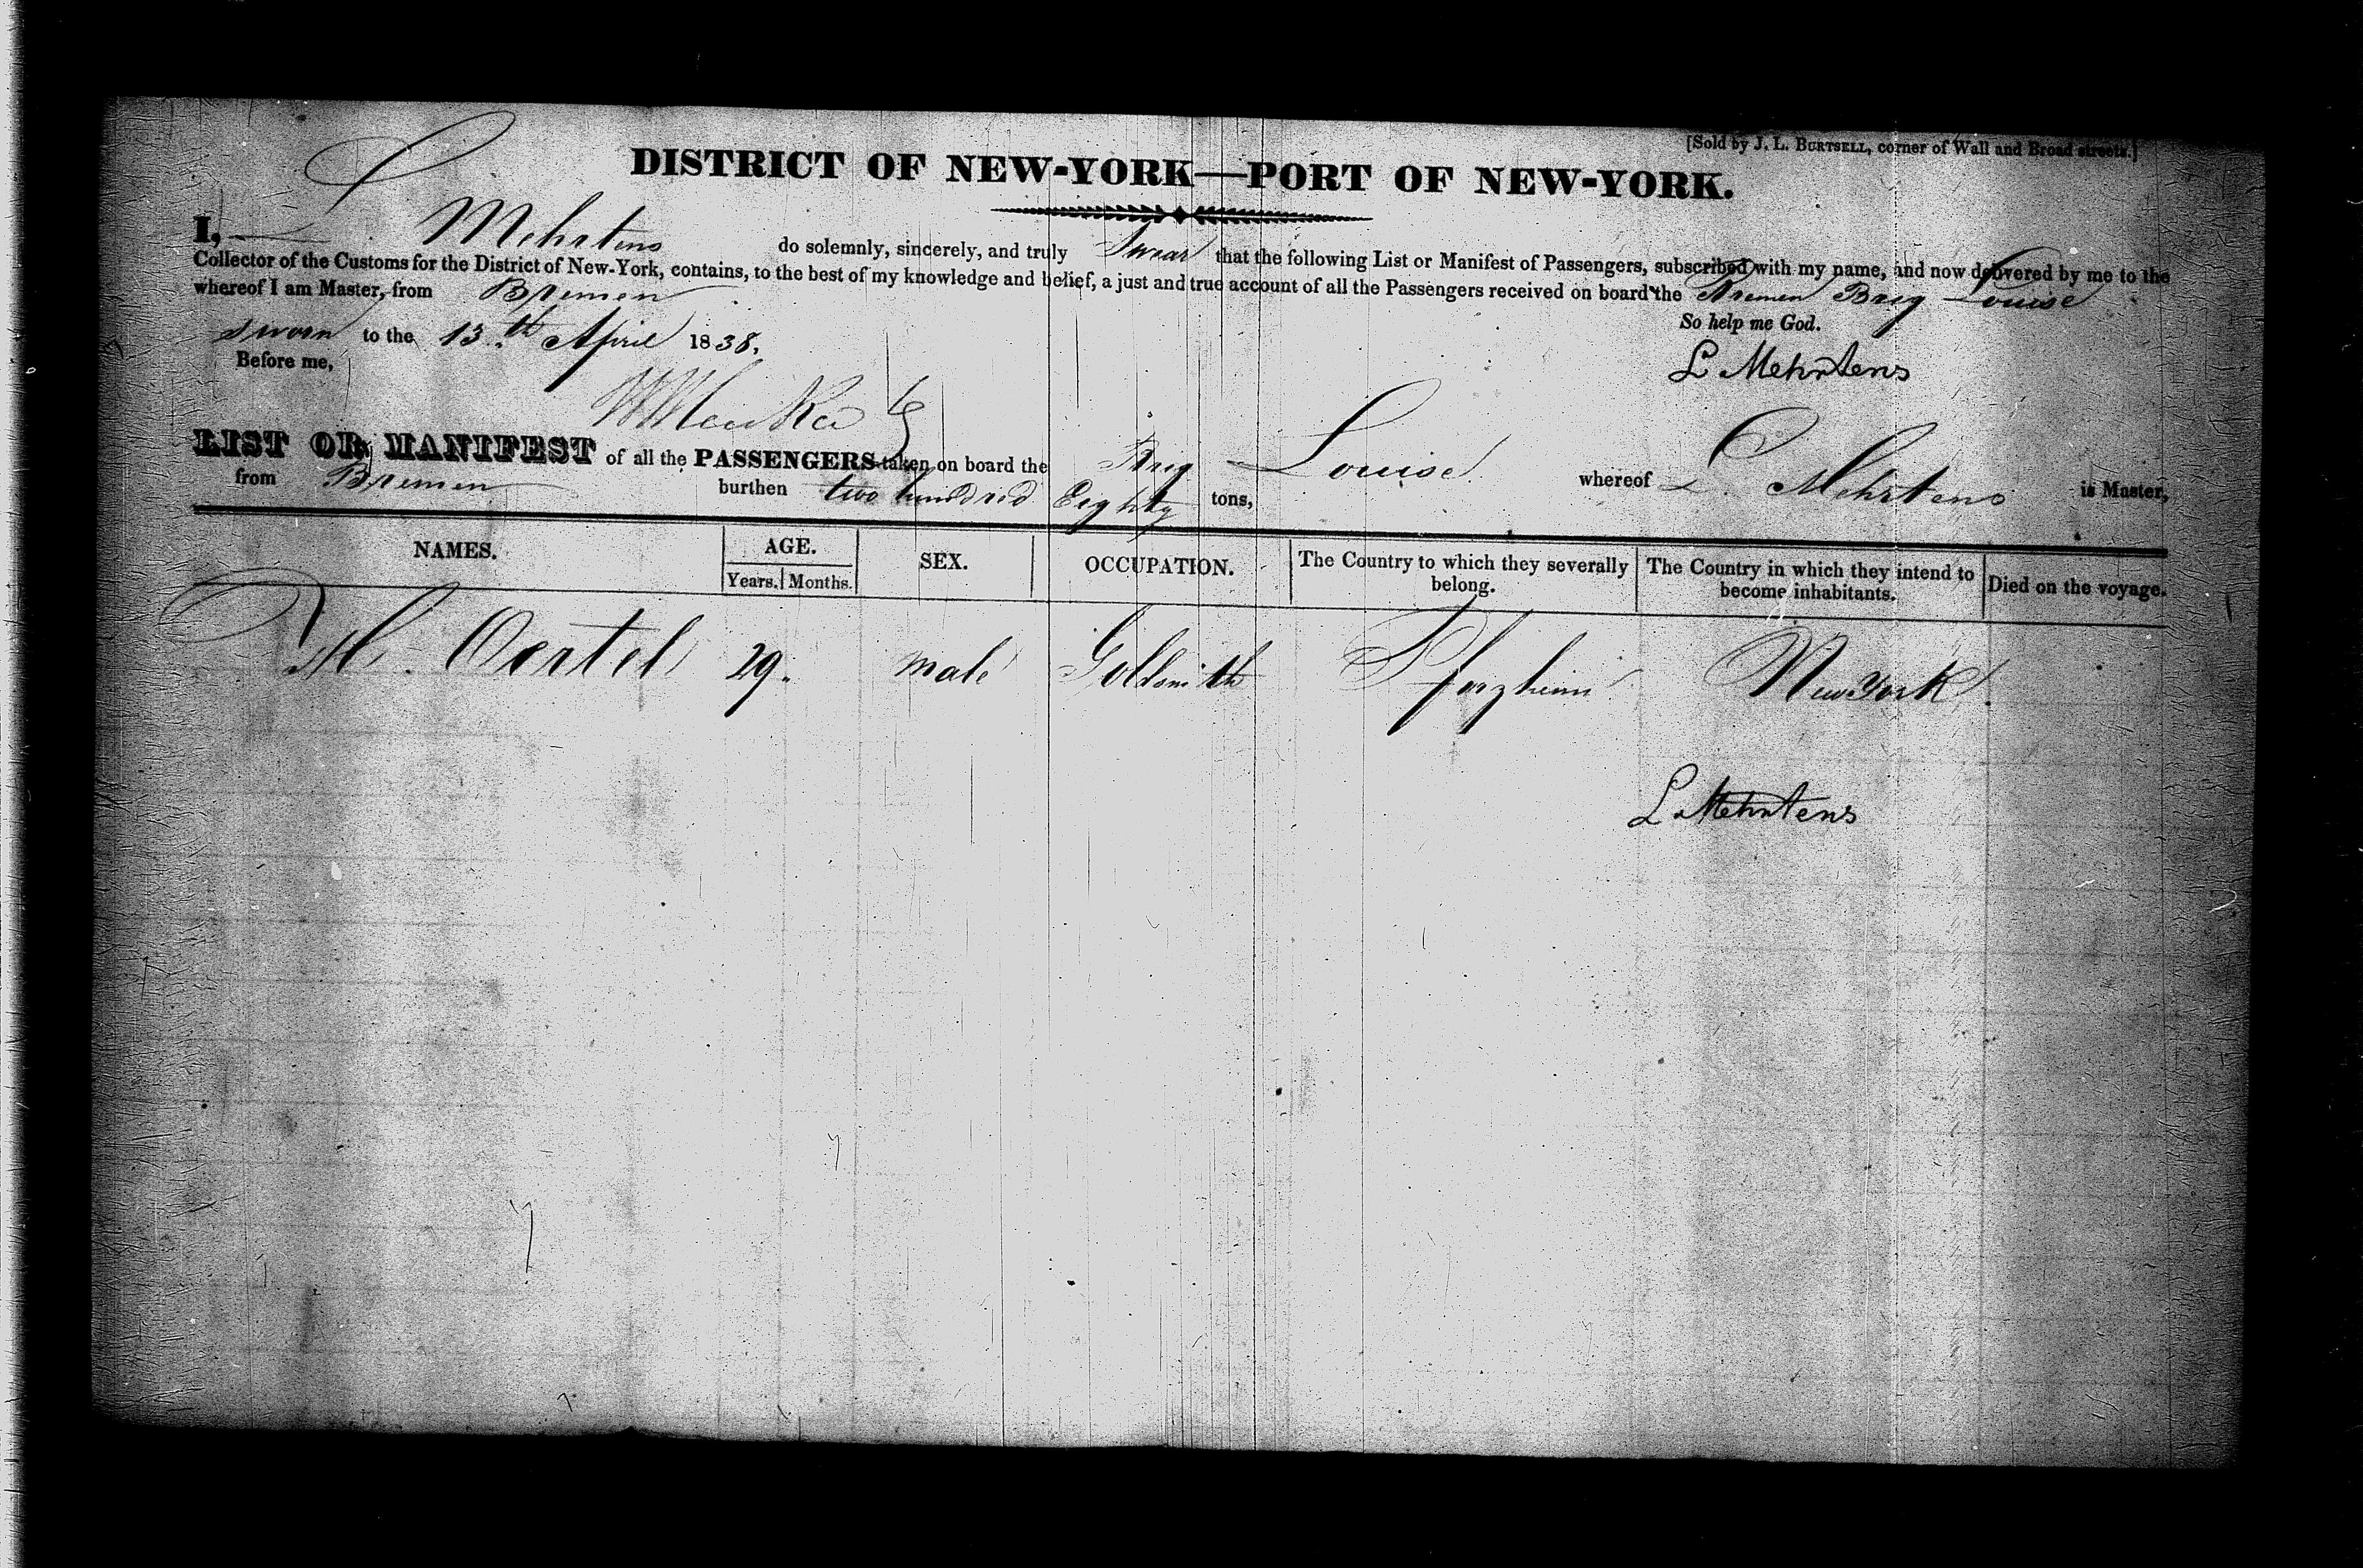 [Sold by J. L. BURTSELL, corner of Wall and Broad streets.]
DISTRICT OF NEW-YORK—PORT OF NEW-YORK.
I, L Mehrtens do solemnly, sincerely, and truly Swear that the following List or Manifest of Passengers, subscribed with my name, and now delivered by me to the
Collector of the Customs for the District of New-York, contains, to the best of my knowledge and belief, a just and true account of all the Passengers received on board the Bremen Brig Louise
whereof I am Master, from Bremen
So help me God.
Sworn to the 13th April 1838,
L Mehrtens
Before me,
LIST OR MANIFEST of all the PASSENGERS taken on board the Brig Louise whereof L Mehrtens is Master,
from Bremen burthen two hundred Eighty tons,
NAMES. AGE. SEX. OCCUPATION. The Country to which they severally belong. The Country in which they intend to become inhabitants. Died on the voyage.
Years. Months.
Oertel 29. male Goldsmith Pforzheim New York
L Mehrtens